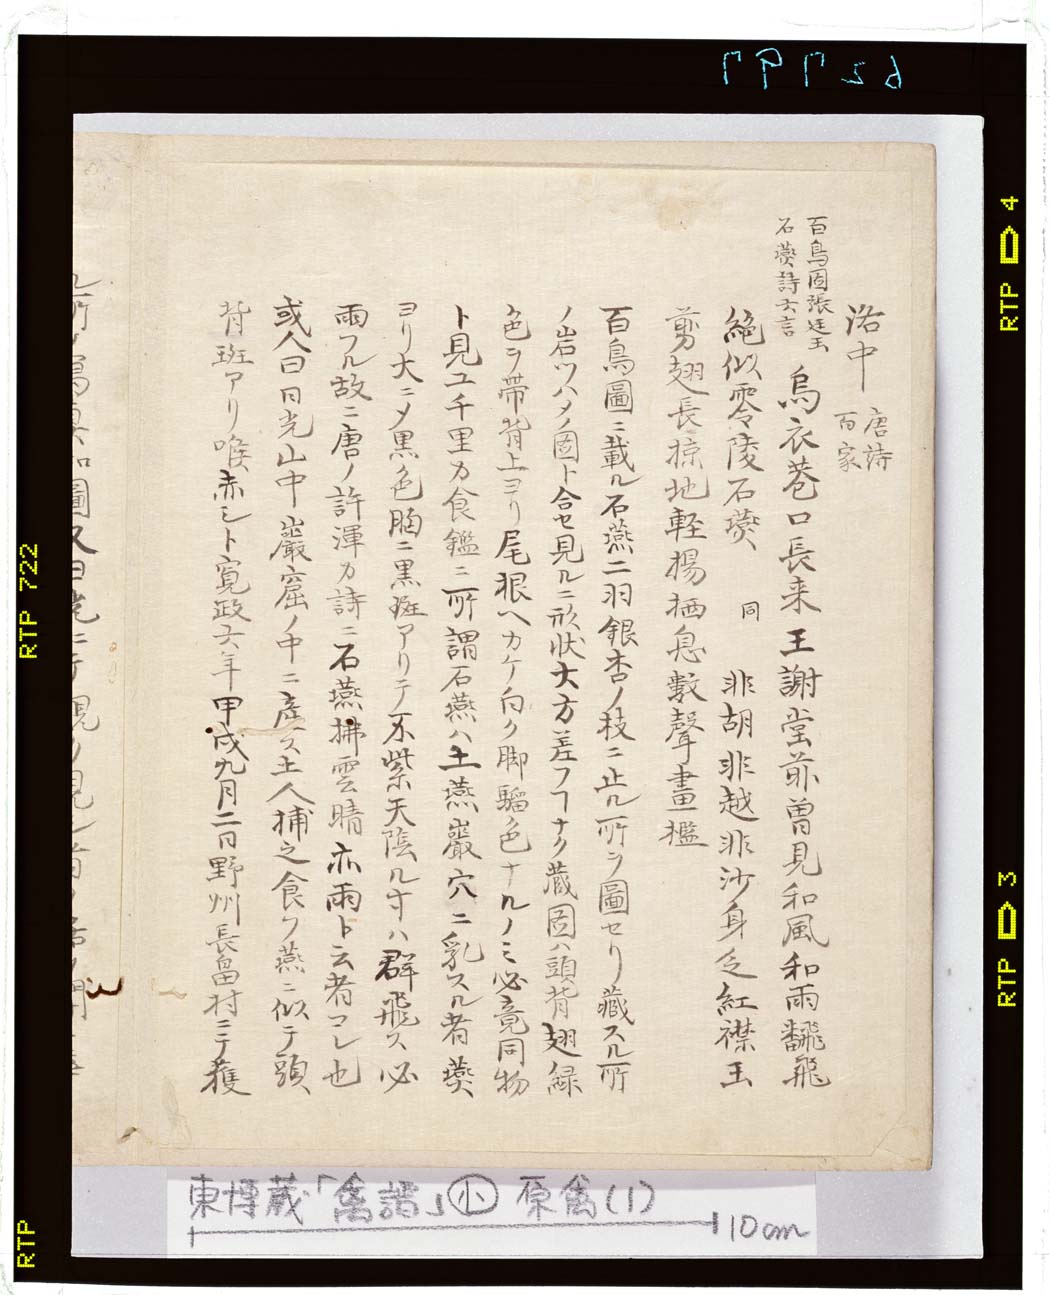 洛中 唐詩百家
百鳥圖張廷玉
石燕詩六言
烏衣巷口長来王謝堂前曽見和風和雨飜飛
絶似零陵石燕 同 非胡非越非沙身乏紅襟玉
剪翅長掠地軽揚栖息數聲畫檻
百鳥圖ニ載ル石燕二羽銀杏ノ枝ニ止ル所ヲ圖セリ藏スル所
ノ岩ツハメノ圖ト合セ見ルニ形状大方差フヿナク蔵圖ハ頭背翅緑
色ヲ帯背上ヨリ尾根ヘカケ白ク脚騧色ナルノミ必竟同物
ト見ユ千里カ食鑑ニ所謂石燕ハ土燕巖穴ニ乳スル者燕
ヨリ大ニメ黒色胸ニ黒斑アリテ不紫天陰ル寸ハ群飛ス必
雨フル故ニ唐ノ許渾カ詩ニ石燕拂雲晴亦雨ト云者コレ也
或人曰日光山中巖窟ノ中ニ産ス土人捕之食フ燕ニ似テ頭
背斑アリ喉赤シト寛政六年甲戌九月二日野州長畠村ニテ獲
東博蔵「禽譜」小 原禽(1)
10cm
RTP 722
RTP
RTP 4
RTP 3